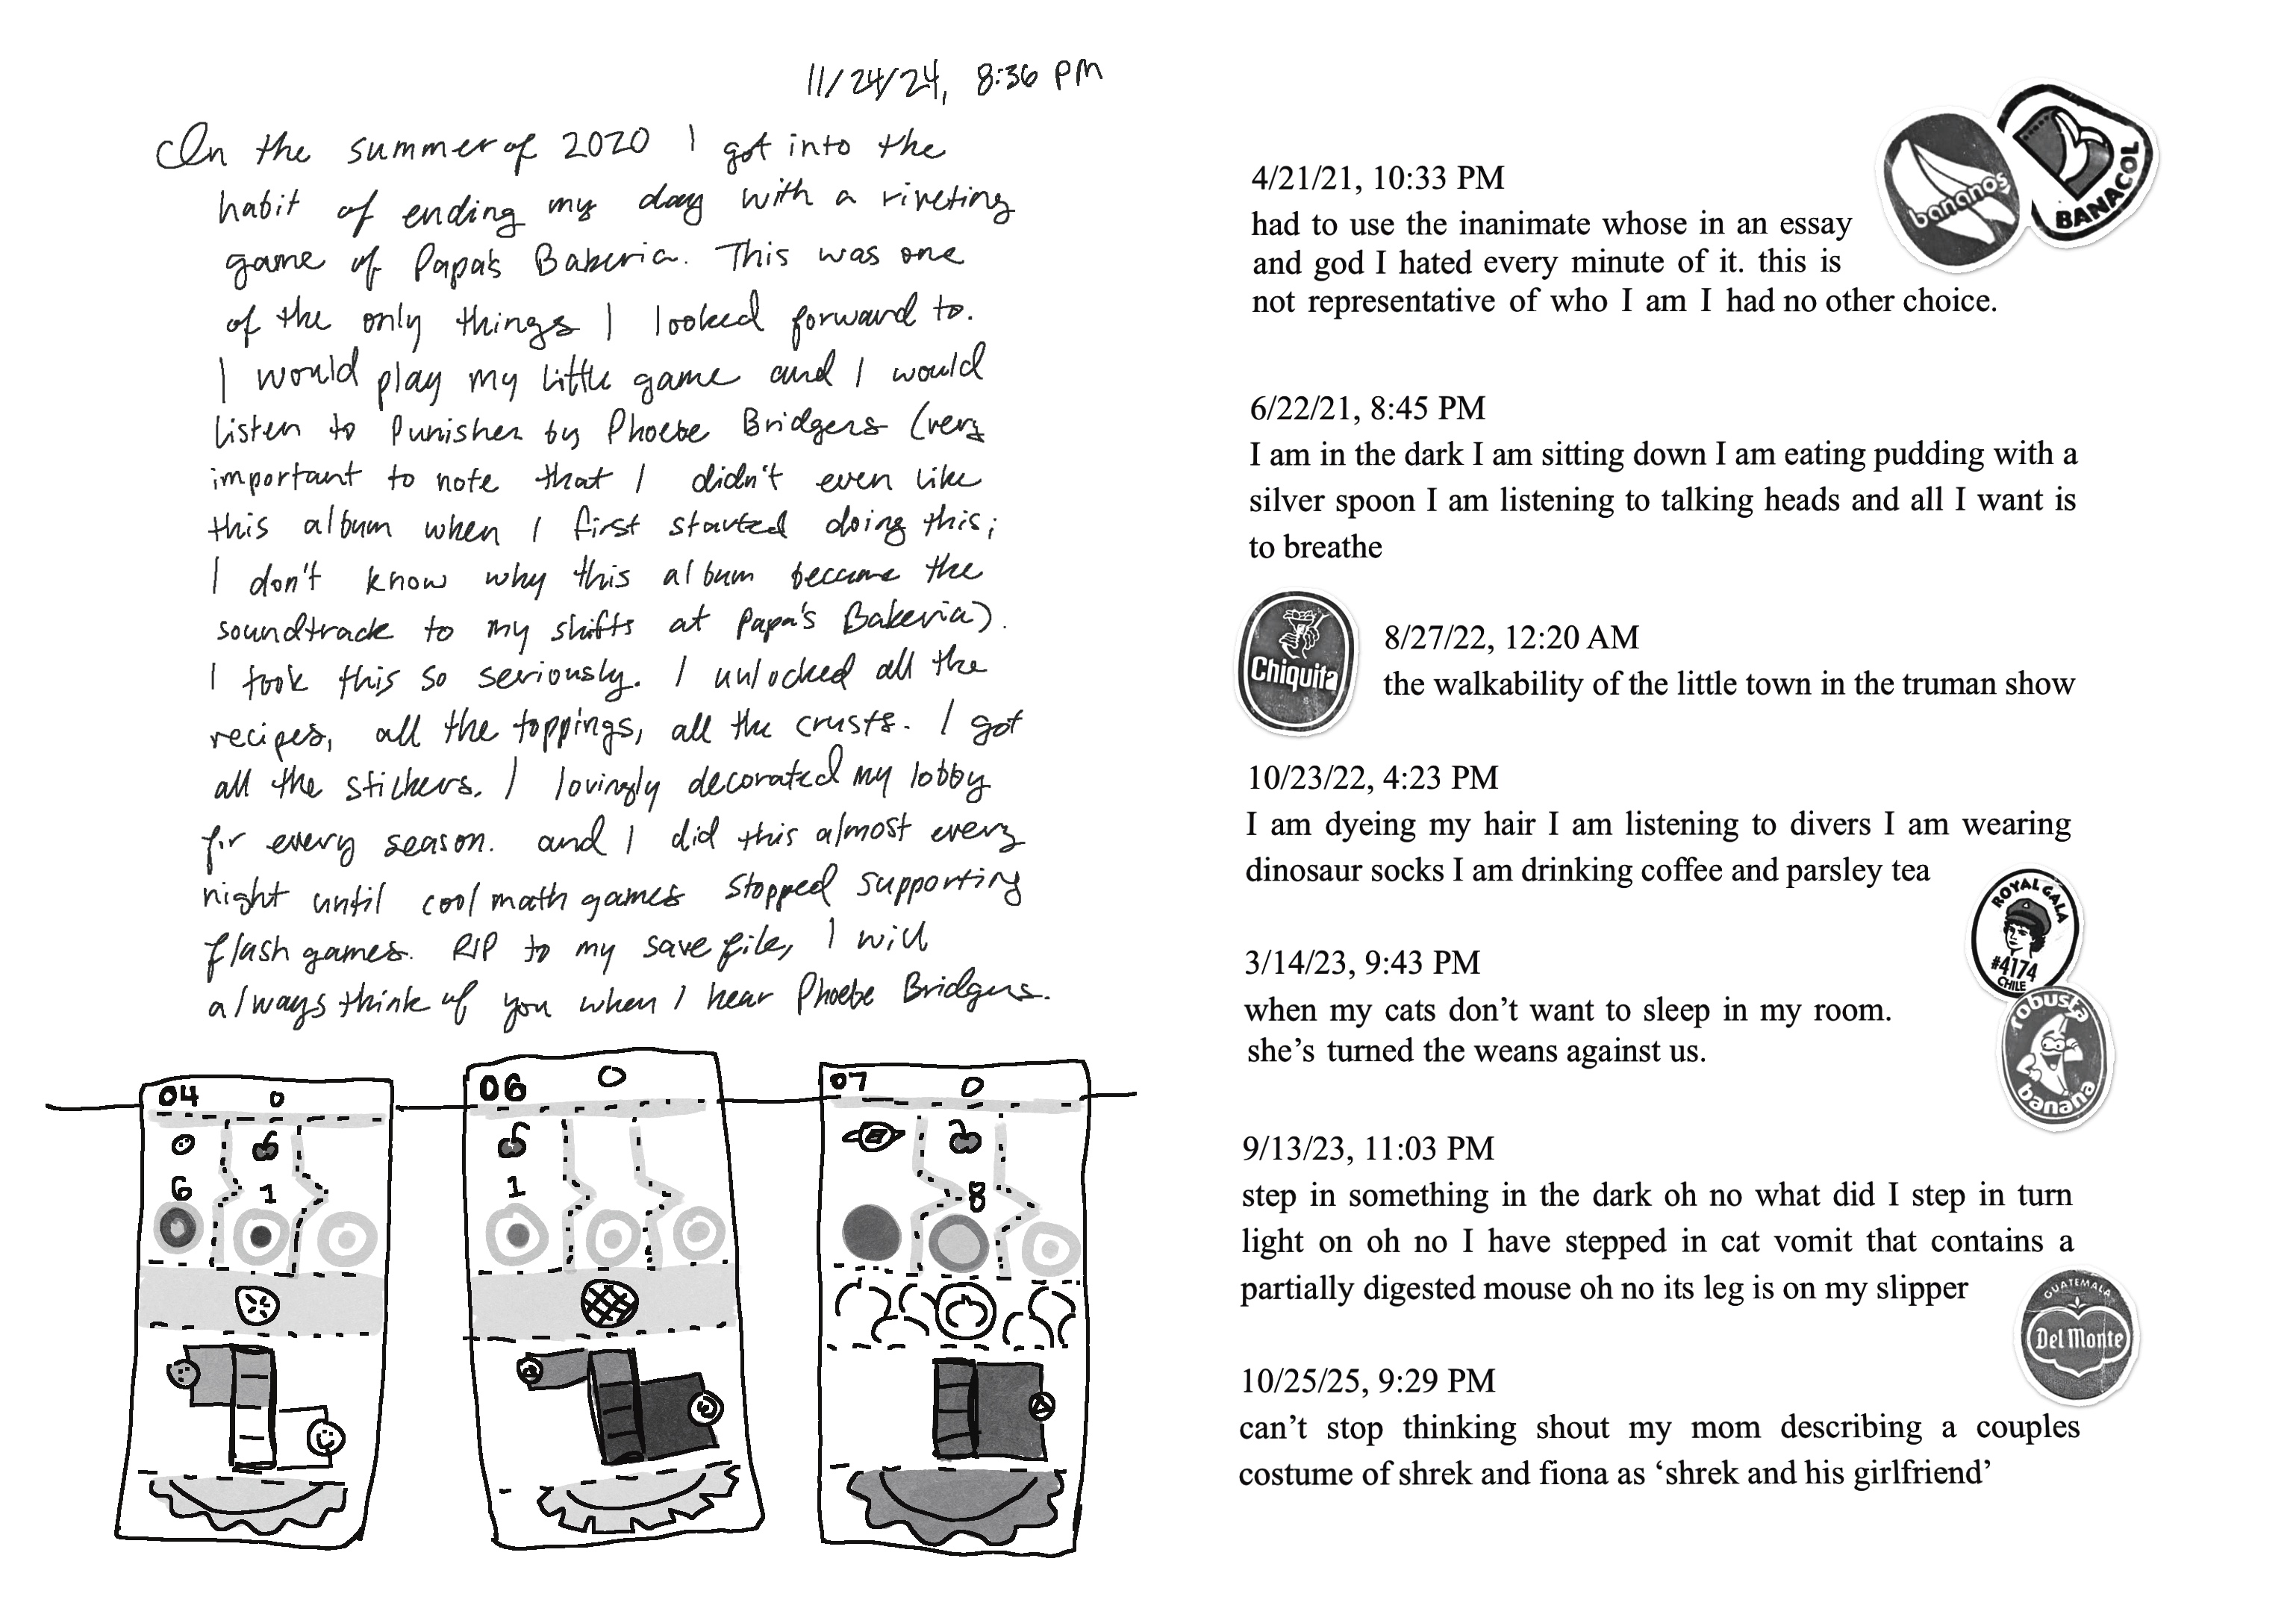 11/24/24, 8:36 PM
In the summer of 2020 I got into the
habit of ending my day with a riveting
game of Papa's Bakeria. This was one
of the only things I looked forward to.
I would play my little game and I would
listen to Punisher by Phoebe Bridgers (very
important to note that I didn't even like
this album when I first started doing this;
I don't know why this album became the
soundtrack to my shifts at Papa's Bakeria).
I took this so seriously. I unlocked all the
recipes, all the toppings, all the crusts. I got
all the stickers. I lovingly decorated my lobby
for every season. and I did this almost every
night until cool math games stopped supporting
flash games. RIP to my save file, I will
always think of you when I hear Phoebe Bridgers.
04
6
1
06
1
07
8
bananos
BANACOL
4/21/21, 10:33 PM
had to use the inanimate whose in an essay
and god I hated every minute of it. this is
not representative of who I am I had no other choice.
6/22/21, 8:45 PM
I am in the dark I am sitting down I am eating pudding with a
silver spoon I am listening to talking heads and all I want is
to breathe
Chiquita
8/27/22, 12:20 AM
the walkability of the little town in the truman show
10/23/22, 4:23 PM
I am dyeing my hair I am listening to divers I am wearing
dinosaur socks I am drinking coffee and parsley tea
ROYAL GALA
#4174
CHILE
3/14/23, 9:43 PM
when my cats don't want to sleep in my room.
she's turned the weans against us.
robusta
banana
9/13/23, 11:03 PM
step in something in the dark oh no what did I step in turn
light on oh no I have stepped in cat vomit that contains a
partially digested mouse oh no its leg is on my slipper
GUATEMALA
Del Monte
10/25/25, 9:29 PM
can't stop thinking shout my mom describing a couples
costume of shrek and fiona as 'shrek and his girlfriend'